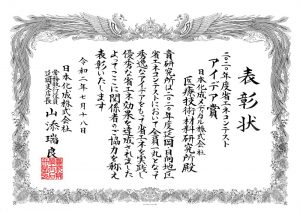 表彰状
二〇二〇年度省エネコンテスト
アイデア賞
日本化成メディカル株式会社
医療技術材料研究所殿
貴研究所は二〇二〇年度延岡・日向地区
省エネコンテストにおいて全員一丸となって
秀逸なアイデアをもって省エネを実践し
優秀な省エネ効果を達成されました
よってここに関係者のご協力を称え
表彰いたします
令和二年七月十八日
日本化成株式会社
常務執行役員
延岡支店長
山添瑞良